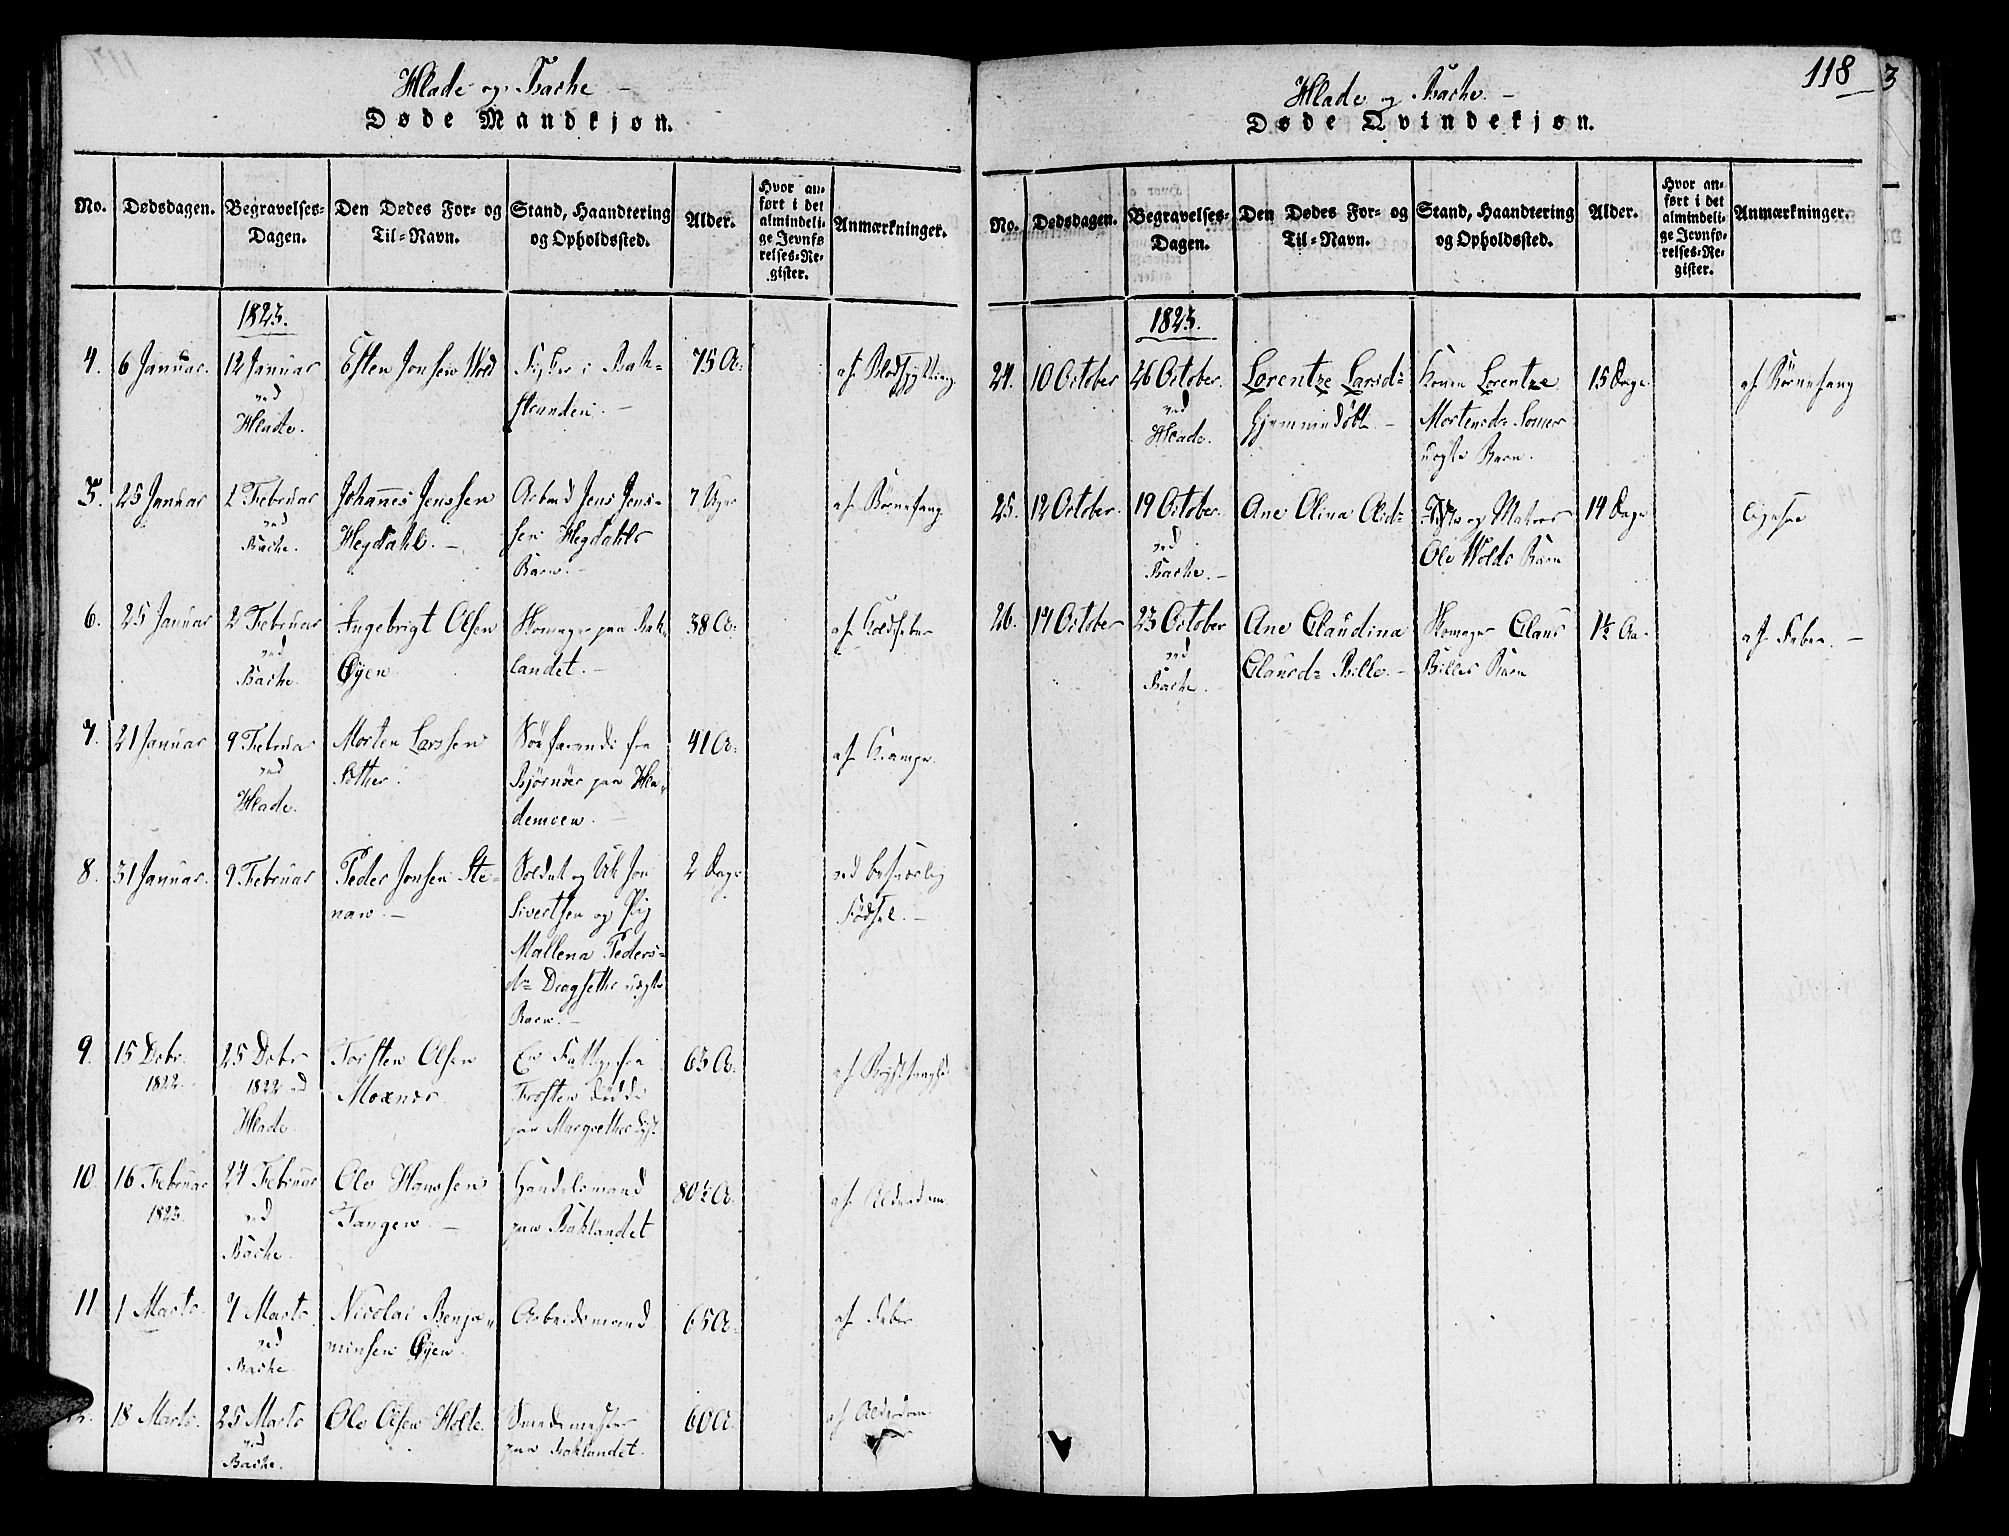 Hlade og Bache
Døde Mandkjøn.
No.
Dødsdagen.
Begravelses-
Dagen.
Den Dødes For- og
Til-Navn.
Stand, Haandtering
og Opholdssted.
Alder.
Hvor an-
ført i det
almindeli-
ge Jevnfø
relses-Re-
gister.
Anmærkninger.
1823.
4. 6 Januar. 12 Januar
ved
Hlade.
Esten Jonsen Wold
Fisker i Bak-
stranden.
75 A:
af Blodspytting
5. 25 Januar 2 Februar
ved
Bache.
Johannes Jenssen
Hegdahl.
Arbmd Jens Jens-
sen Hegdahls
Barn.
7 Uger
af Børnefang
6. 25 Januar 2 Februar
ved
Bache.
Ingebrigt Olsen
Øyen
paa Bak-
landet.
38 A:
af
7. 21 Januar 9 Februar
ved
Hlade.
Morten Larssen
Søfarende fra
Bjørnør paa Hla-
demoen.
41 A:
af Krampe
8. 31 Januar. 9 Februar
Peder Jonsen Ste-
nan.
Soldat og Uk Jon
Sivertsen og Pig
Mallena Peders-
dr Dragseths uægte
Barn.
2 Dage
ved besværlig
Fødsel.
9. 15 Debr.
1822.
25 Debr
1822 ved
Hlade.
Torsten Olsen
Moxnes.
En Fattig fra
Frosten døde
paa
63 A:
af Brystsvaghed
10. 16 Februar
1823.
24 Februar
ved
Bache.
Ole Hanssen
Tangen.
Handelsmand
paa Baklandet
80½ A.
af Alderdom
11. 1 Marts. 7 Marts
ved
Bache.
Nicolai Benja-
minsen Øyen.
Arbeidsmand
65 A:
af Feber
18 Marts. 25 Marts
ved
Bache.
Ole Olsen Holte.
Smedemester
paa Baklandet.
60 A.
af Alderdom
Hlade og Bache.
118
3
Døde Qvindekjøn.
No.
Dødsdagen.
Begravelses-
Dagen.
Den Dødes For- og
Til-Navn.
Stand, Haandtering
og Opholdssted.
Alder.
Hvor an-
ført i det
almindeli-
ge Jevnfø-
relses-Re-
gister.
Anmærkninger.
1823.
24. 10 October 26 October.
ved
Hlade.
Lorentze Larsd=
Hjemmedøbt.
Lorentze
Mortensd=
uægte Barn.
15 Dage
af Børnefang
25. 12 October. 19 October.
ved
Bache.
Ane Olina Olsd=
og Matros
Ole Wolds Barn
14 Dage
ligesaa
26. 17 October 23 October
ved
Bache.
Ane Claudina
Clausd= Bille.
Claus
Billes Barn
1½ Aa.
af Feber.